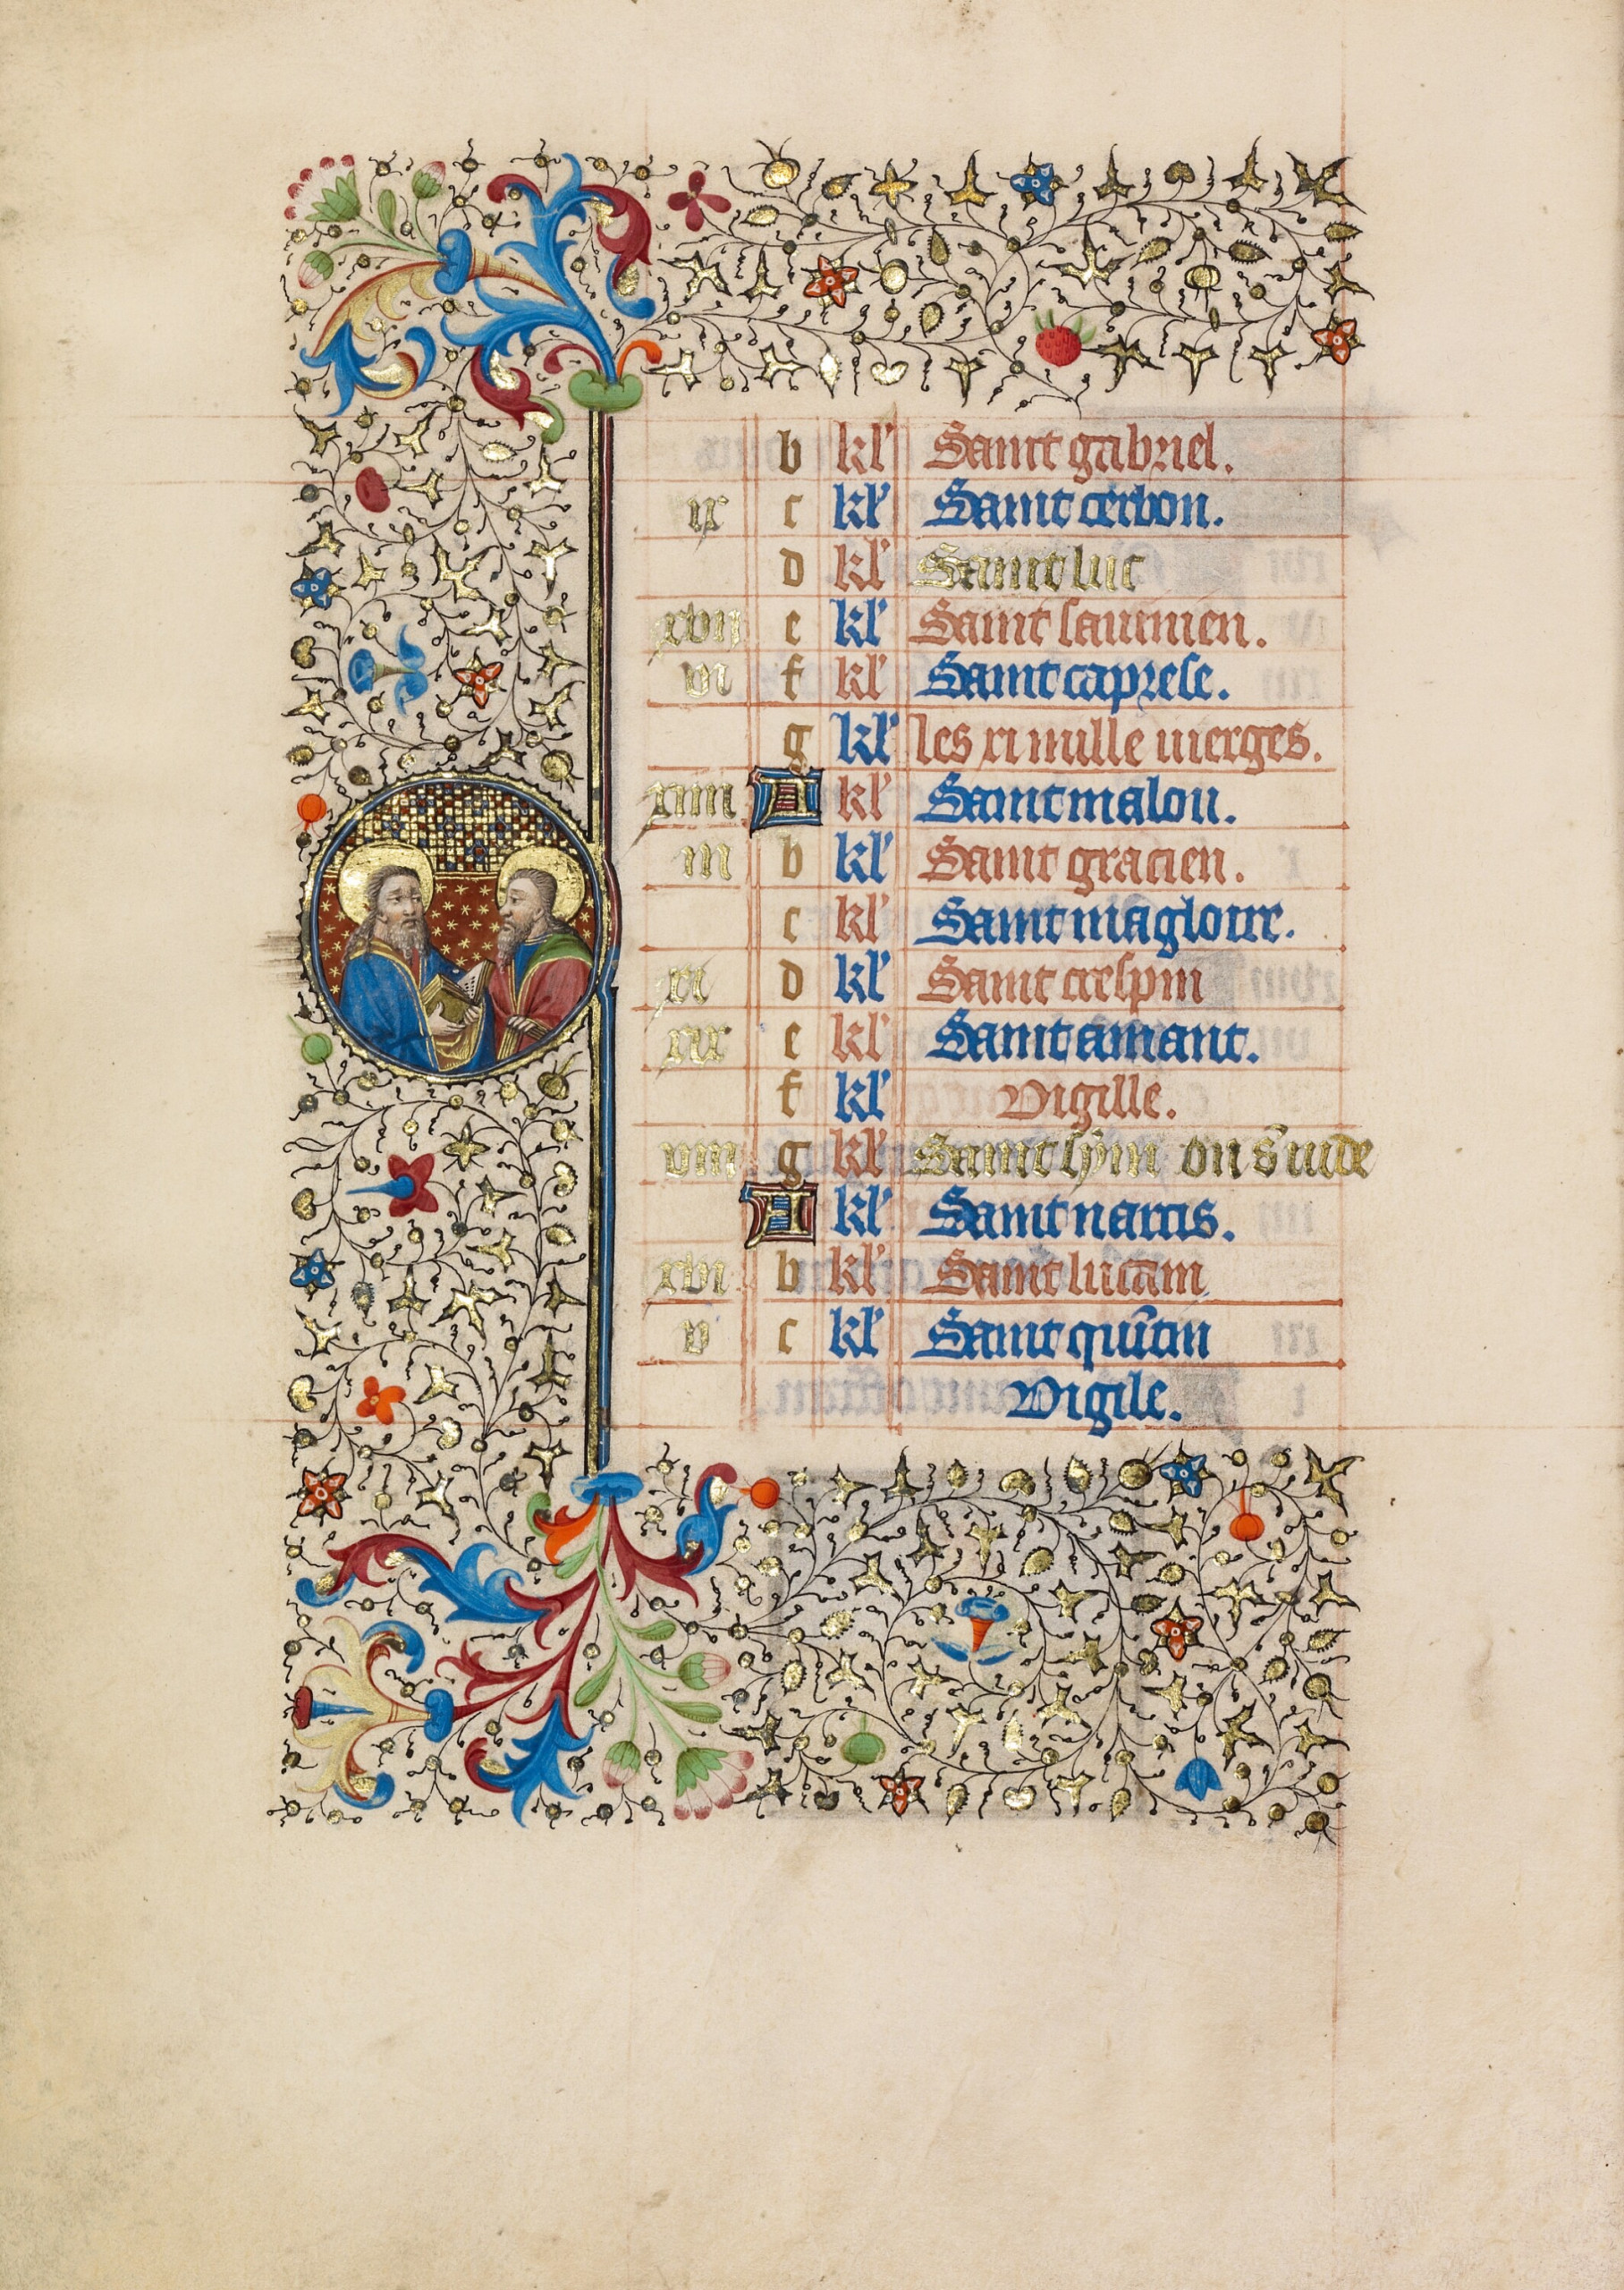 b kl' Saint gabriel.
ix c kl' Saint cerbon.
d kl' Saint luc
xvii e kl' Saint saurnien.
vi f kl' Saint caprese.
g kl' les xi mille vierges.
xiiii A kl' Saint malou.
iii b kl' Saint gracien.
c kl' Saint magloire.
xi d kl' Saint crespin
xix e kl' Saint amant.
f kl' Vigille.
viii g kl' Saint sym on s iude
A kl' Saint narcis.
xvi b kl' Saint lucam
v c kl' Saint quītin
Vigile.